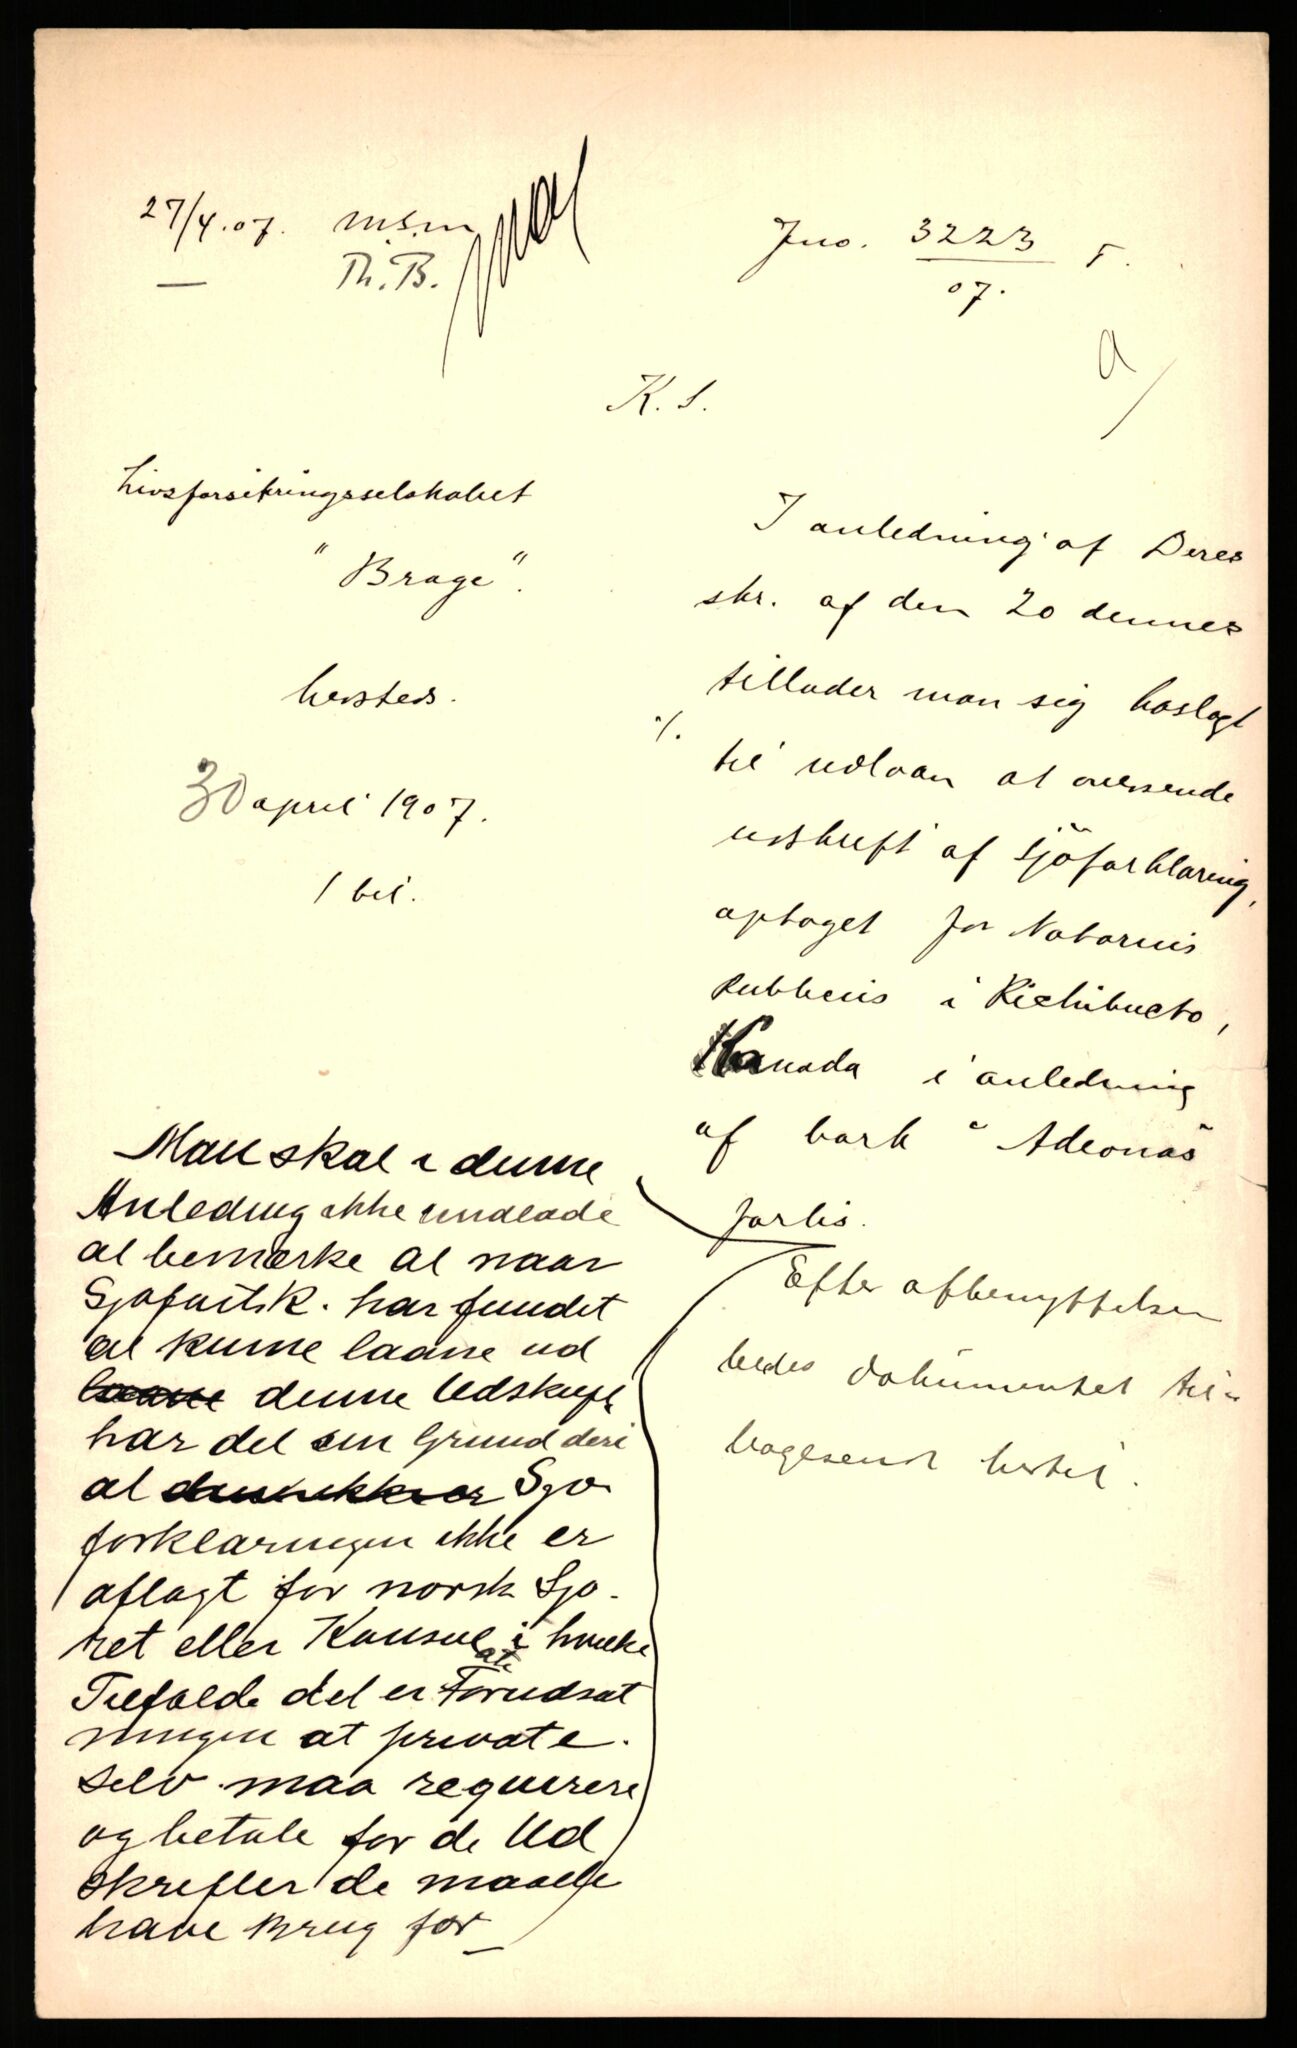 27/4.07. M.S.m
Th.B.
Jno. 3223 F.
07.
K. S.
Livsforsikringsselskabet
"Brage".
hersteds.
30 april 1907.
1 bil.
I anledning af Deres
skr. af den 20 dennes
tillader man sig hoslagt
%. til udlaan at oversende
udskrift af sjöforklaring,
optaget for Notarius
Publicus i Richibucto,
Kanada i anledning
af bark "Adeonas"
forlis.
Man skal i denne
Anledning ikke undlade
at bemærke at naar
Sjøfartsk. har fundet
at kunne laane ud
laane denne Udskrift
har det sin Grund deri
at Sjø
forklaringen ikke er
aflagt for norsk Sjø-
ret eller Konsulat i hvilke
Tilfælde det er Forudsæt
ningen at private
selv maa requirere
og betale for de Ud
skrifter de maatte
have Brug for
Efter afbenyttelsen
bedes dokumentet til-
bagesendt hertil.